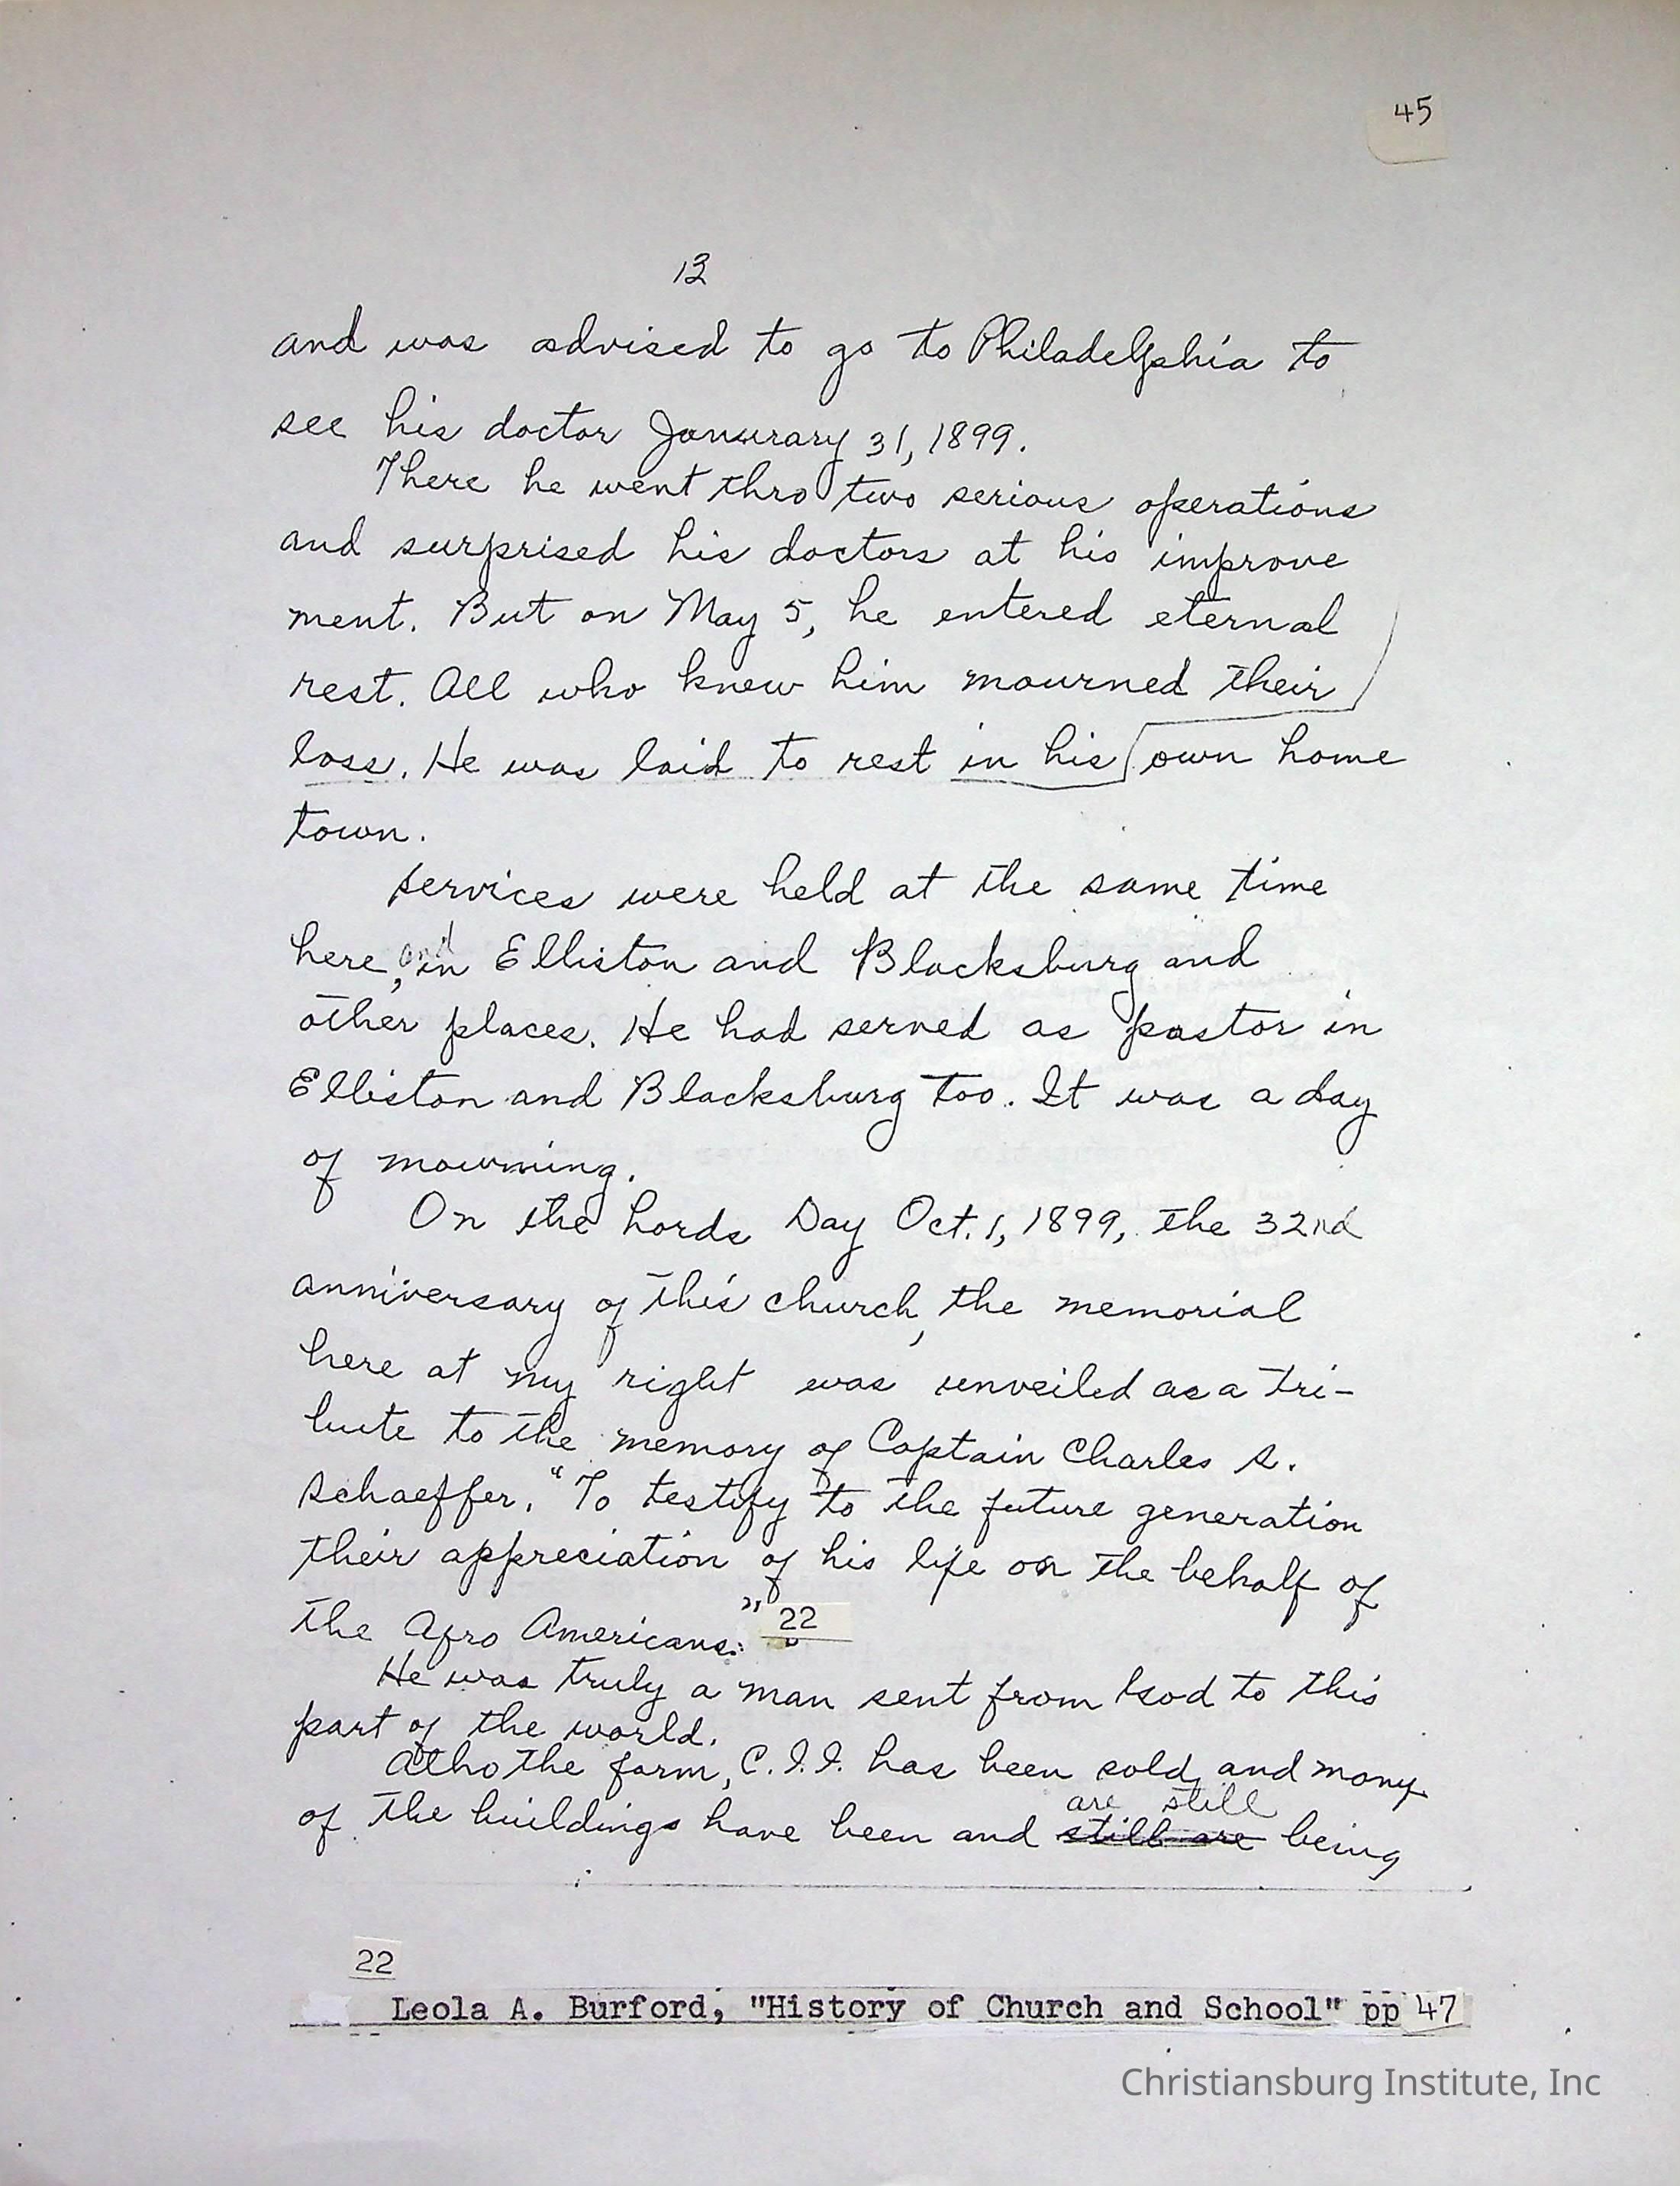 45
13
and was advised to go to Philadelphia to
see his doctor Janurary 31, 1899.
There he went thro two serious operations
and surprised his doctors at his improve
ment. But on May 5, he entered eternal
rest. All who knew him mourned their
loss. He was laid to rest in his own home
town.
Services were held at the same time
here, and in Elliston and Blacksburg and
other places. He had served as pastor in
Elliston and Blacksburg too. It was a day
of mourning.
On the Lords Day Oct. 1, 1899, the 32nd
anniversary of this church, the memorial
here at my right was unveiled as a tri-
bute to the memory of Captain Charles S.
Schaeffer. "To testify to the future generation
their appreciation of his life on the behalf of
the Afro Americans." 22
He was truly a man sent from God to this
part of the world.
Altho the farm, C.I.I. has been sold, and many
of the buildings have been and still are are still being
22
Leola A. Burford, "History of Church and School" pp 47
Christiansburg Institute, Inc